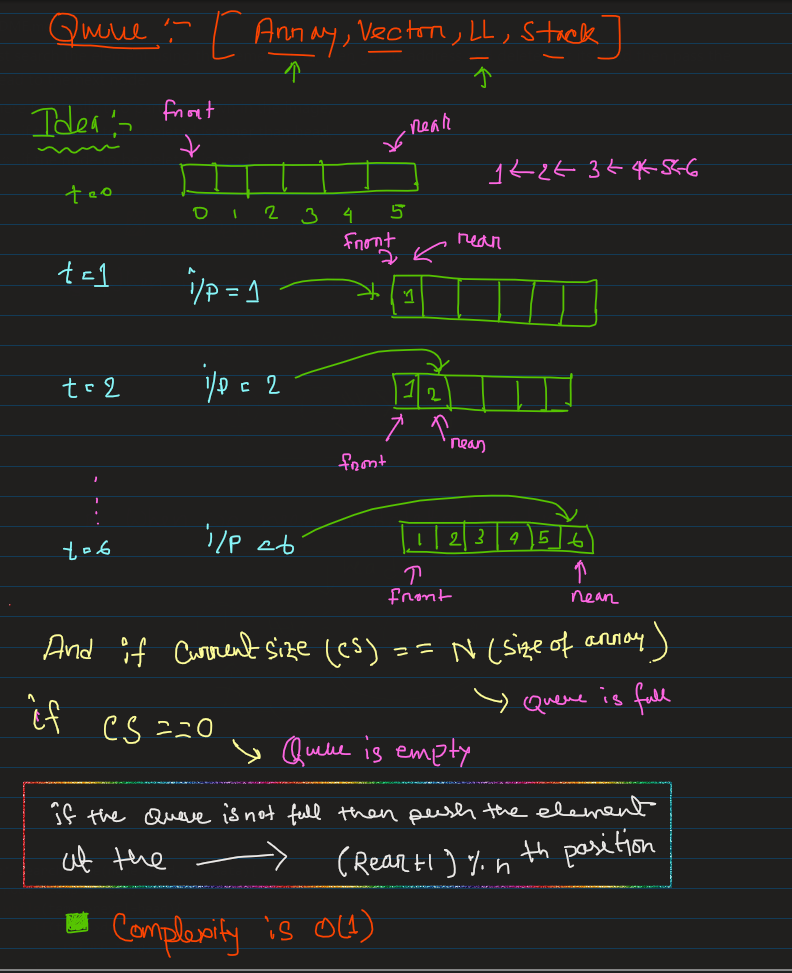 Queue :- [ Array, Vector, LL, Stack ]
Idea :-
front
rear
t=0
0 1 2 3 4 5
1 ← 2 ← 3 ← 4 ← 5 ← 6
front rear
t=1 i/p = 1
1
t=2 i/p = 2
1 2
front rear
t=6 i/p = 6
1 2 3 4 5 6
front rear
And if Current size (CS) == N (size of array)
→ Queue is full
if CS ==0
→ Queue is empty
if the Queue is not full then push the element
at the → (Rear+1) % n th position
Complexity is O(1)